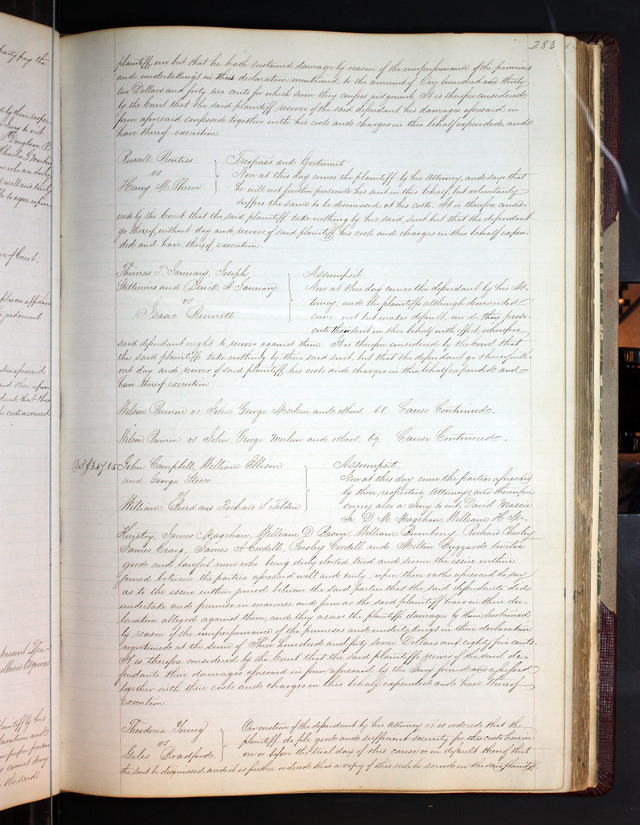 283
plaintiff nor but that he hath sustained damage by reason of the nonperformance of the promises
and undertakings in their declaration mentioned to the amount of One hundred and thirty
two Dollars and forty two cents for which sum they confess judgment. It is therefore considered
by the Court that the said plaintiff recover of the said defendant his damages aforesaid in
form aforesaid confessed together with his costs and charges in this behalf expended and
have thereof execution
Russell Prentiss
vs
Henry McShree
Trespass and Ejectment
Now at this day comes the plaintiff by his Attorney, and says that
he will not further prosecute his suit in this behalf but voluntarily
suffers the same to be dismissed at his costs. It is therefore consid-
ered by the Court that the said plaintiff take nothing by his said suit but that the defendant
go thereof without day and recover of said plaintiff his costs and charges in this behalf expen-
ded and have thereof execution.
Thomas T January, Joseph
and Derick A January
vs
Isaac Burnett
Assumpsit
Now at this day comes the defendant by his At-
torney, and the plaintiffs although demanded
come not but makes default, nor do they prose-
cute their suit in this behalf with effect wherefore
said defendant ought to recover against them. It is therefore considered by the Court that
the said plaintiffs take nothing by their said suit, but that the defendant go thereof with-
out day and recover of said plaintiff his costs and charges in this behalf expended and
have thereof execution
Wilson Primm vs John George Merlin and others 68 Cause Continued.
Wilson Primm vs John George Merlin and others 69 Cause Continued.
John Campbell William Ellison
and George Steece
vs
William Burd and Richard S Tilden
Assumpsit
Now at this day come the parties aforesaid
by their respective Attorneys and thereupon
comes also a Jury to wit David Massie
Jr. D. M. Magehan, William H
James Magehan, William D Bacon, William Bumbery, Richard Charly
James Craig, James A Cordell, Presley Cordell and Milton Duggarde twelve
good and lawful men who being duly elected tried and sworn the issue within
joined between the parties aforesaid well and truly, upon their oaths aforesaid do say
as to the issue within joined between the said parties that the said defendants did
undertake and promise in manner and form as the said plaintiff have in their de-
claration alleged against them, and they assess the plaintiffs damages by them sustained
by reason of the nonperformance of the promises and undertakings in their declaration
mentioned at the sum of Three hundred and forty seven Dollars and eighty five cents.
It is therefore considered by the Court that the said plaintiffs recover of the said de-
fendants their damages aforesaid in form aforesaid by the Jury found and assessed
together with their costs and charges in this behalf expended and have thereof
Execution
Theodocia Young
vs
Giles Bradford
On motion of the defendant by his Attorney it is ordered that the
plaintiff do file good and sufficient security for the costs herein
on or before the trial day of this cause or in default thereof that
the suit be dismissed and it is further ordered that a copy of this rule be served on the said plaintiff